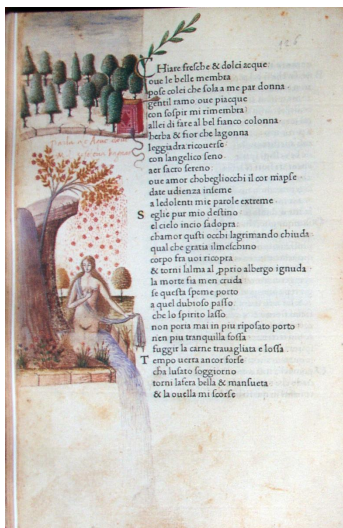 126
CHiare fresche & dolci acque
oue le belle membra
pose colei che sola a me par donna
gentil ramo oue piacque
con sospir mi rimembra
allei di fare al bel fianco colonna
herba & fior che lagonna
leggiadra ricouerse
con langelico seno
aer sacro sereno
oue amor chobegliocchi il cor mapse
date udienza inseme
a le dolenti mie parole extreme
S eglie pur mio destino
el cielo incio sadopra
chamor questi occhi lagrimando chiuda
qual che gratia il meschino
corpo fra uoi ricopra
& torni lalma al pprio albergo ignuda
la morte fia men cruda
se questa speme porto
a quel dubioso passo
che lo spirito lasso
non poria mai in piu riposato porto
nen piu tranquilla fossa
fuggir la carne trauagliata e lossa
T empo uerra ancor forse
cha lusato soggiorno
torni lafera bella & mansueta
& la ouella mi scorse